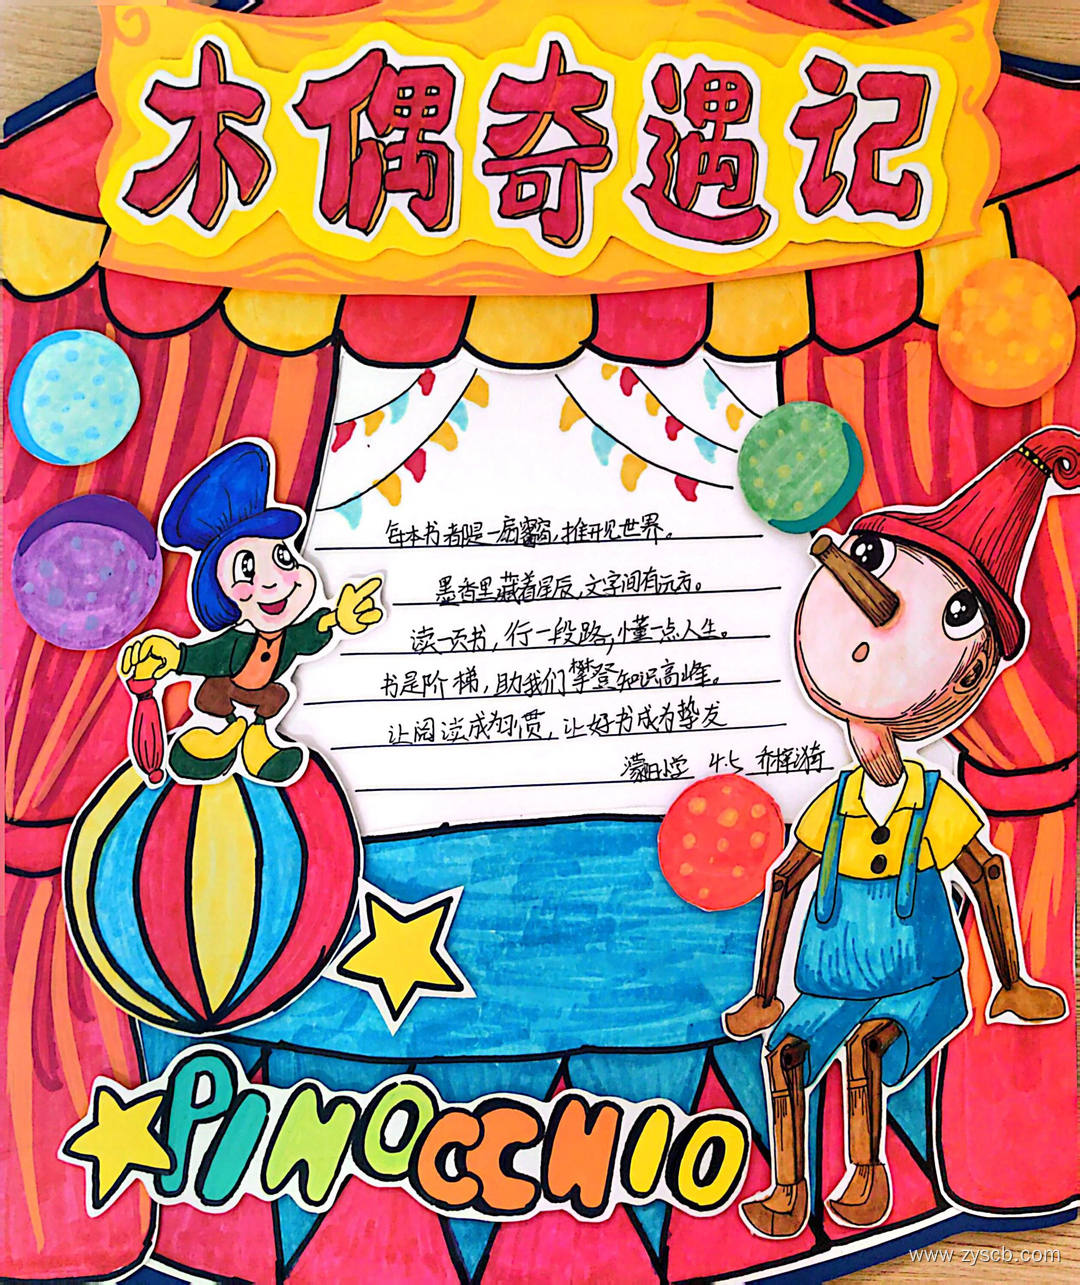 木偶奇遇记
每本书都是一扇窗，推开见世界。
墨香里藏着星辰，文字间有远方。
读一页书，行一段路，懂一点人生。
书是阶梯，助我们攀登知识高峰。
让阅读成为习惯，让好书成为挚友
濛阳小学 4.5
PINOCCHIO
www.zyscb.com